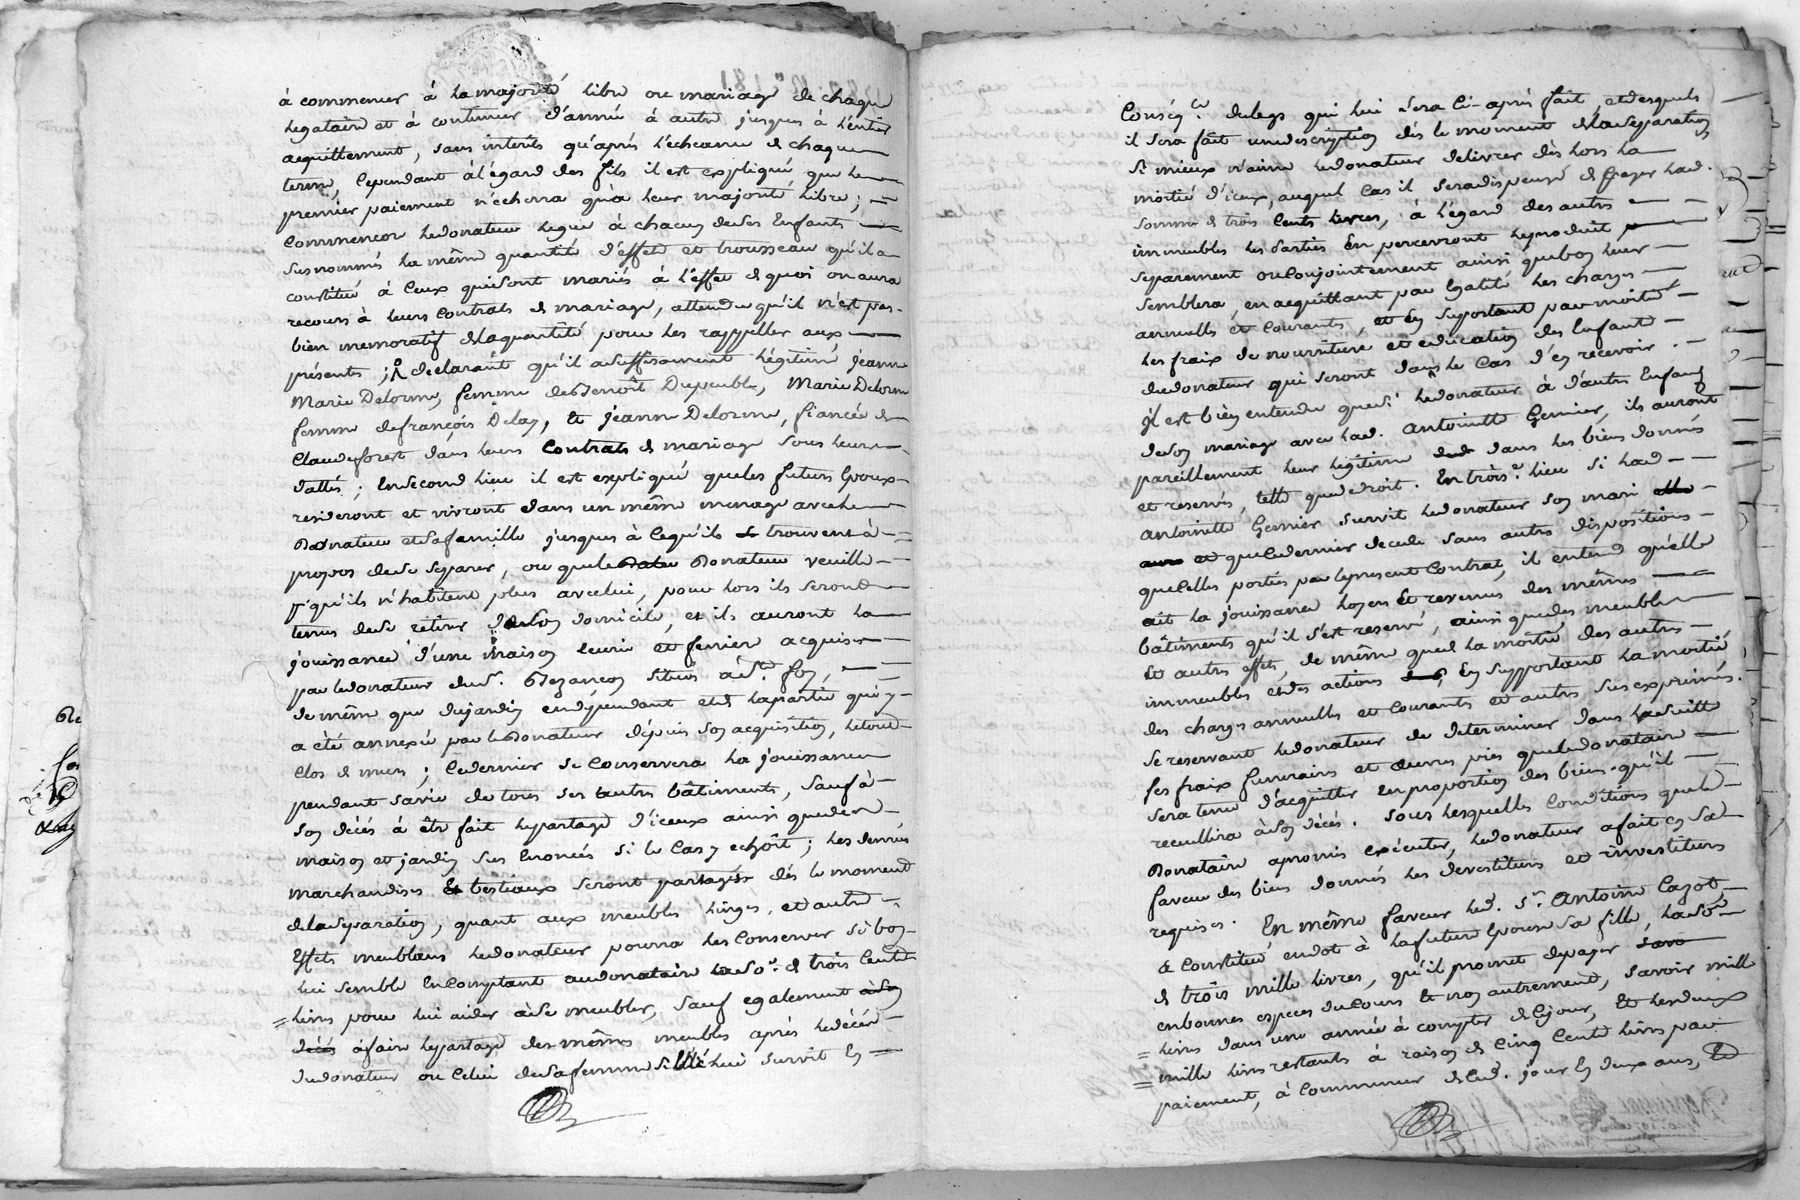 à commencer à la majorité libre ou mariage de chaque
legataire et à continuer d'année à autre jusques à l'entier
acquittement, sans interêts qu'après l'écheance de chaque
terme, Cependant à l'égard des fils il est expliqué que le
premier paiement n'écherra qu'à leur majorité libre;
Commencer ledonateur legue à chacun deses Enfants
susnommés la même quantité d'effets et trousseau qu'il a
constitué à Ceux qui sont mariés à l'effet de quoi on aura
recours à leurs Contrats de mariage, attendu qu'il n'est pas
bien memoratif dela quantité pour les rappeller aux
présents; declarant qu'il a suffisamment légitimé Jeanne
Marie Delorme, femme de Benoît Dupeuble, Marie Delorme
femme de françois Delay, Et Jeanne Delorme, fiancée de
Claude forest dans leurs Contrats de mariage sous leurs
dattes; En second lieu il est expliqué que les futurs Epoux
resideront et vivront dans un même menage avec le
Donateur et sa famille jusques à Ce qu'ils se trouvent à
propos de se separer, ou que le Donateur veuille
qu'ils n'habitent plus avec lui, pour lors ils seront
tenus de se retirer de son domicile, et ils auront la
jouissance d'une maison Ecurie et fenier acquise
par ledonateur du S. Bezançon située à St. foy,
de même que du jardin en dépendant et de la partie qui y
a été annexée par le Donateur dépuis son acquisition, le tout
Clos de murs; Ce dernier se Conservera la jouissance
pendant sa vie de tous ses autres bâtiments, sauf à
son décès à être fait le partage d'iceux ainsi que de
maison et jardin sus Enoncés si le Cas y echoît; les denrées
marchandises Et bestiaux seront partagés dès le moment
dela separation, quant aux meubles linges, et autres
Effets meublans ledonateur pourra les Conserver si bon
lui semble En Comptant au donataire la so.e de trois Cents
livres pour lui aider à se meubler, sauf egalement à son
décès à faire le partage des mêmes meubles après le décès
du donateur ou Celui de sa femme si Elle lui survit En
Conséq.ce du legs qui lui sera Ci-après fait, et desquels
il sera fait une description dès le moment de la separation
si mieux n'aime ledonateur delivrer dès lors la
moitié d'iceux, auquel Cas il sera dispensé de payer lad.
somme de trois Cents livres, à l'égard des autres
immeubles les parties En percevront le produit
separement ou Conjointement ainsi que bon leur
semblera, en acquittant par egalité les charges
annuelles et Courantes, et En suportant par moitié
les fraix de nourriture et education des Enfants
du donateur qui seront dans le Cas d'en recevoir.
Il est bien entendu que si ledonateur à d'autres Enfans
de son mariage avec lad. Antoinette Gernier, ils auront
pareillement leur légitime dans les biens donnés
et reservés, telle que de droit. En trois.e lieu si lad
Antoinette Gernier survit ledonateur son mari elle
aura et que ce dernier decede sans autres dispositions
que Celles portées par le present Contrat, il entend qu'elle
ait la jouissance loyers Et revenus des mêmes
bâtiments qu'il s'est reservé, ainsi que des meubles
Et autres effets, de même que de la moitié des autres
immeubles et des actions En supportant la moitié
des charges annuelles et Courantes et autres sus exprimés.
Se reservant ledonateur de determiner dans la suite
ses fraix funeraires et œuvres pies que le donataire
sera tenu d'acquitter en proportion des biens qu'il
recueillira à son décès. Sous lesquelles Conditions que le
Donataire a promis exécuter, ledonateur a fait en sa
faveur des biens donnés les devestitures et investitures
requises. En même faveur led. S.r Antoine Cazot
a Constitué en dot à la future Epouse sa fille, la so.e
de trois mille livres, qu'il promet de payer
en bonnes especes de Cours Et non autrement, savoir mille
livres dans une année à compter de Ce jour, Et les deux
mille livres restants à raison de Cinq Cents livres par
paiement, à Commencer de Ced. jour En deux ans, Et